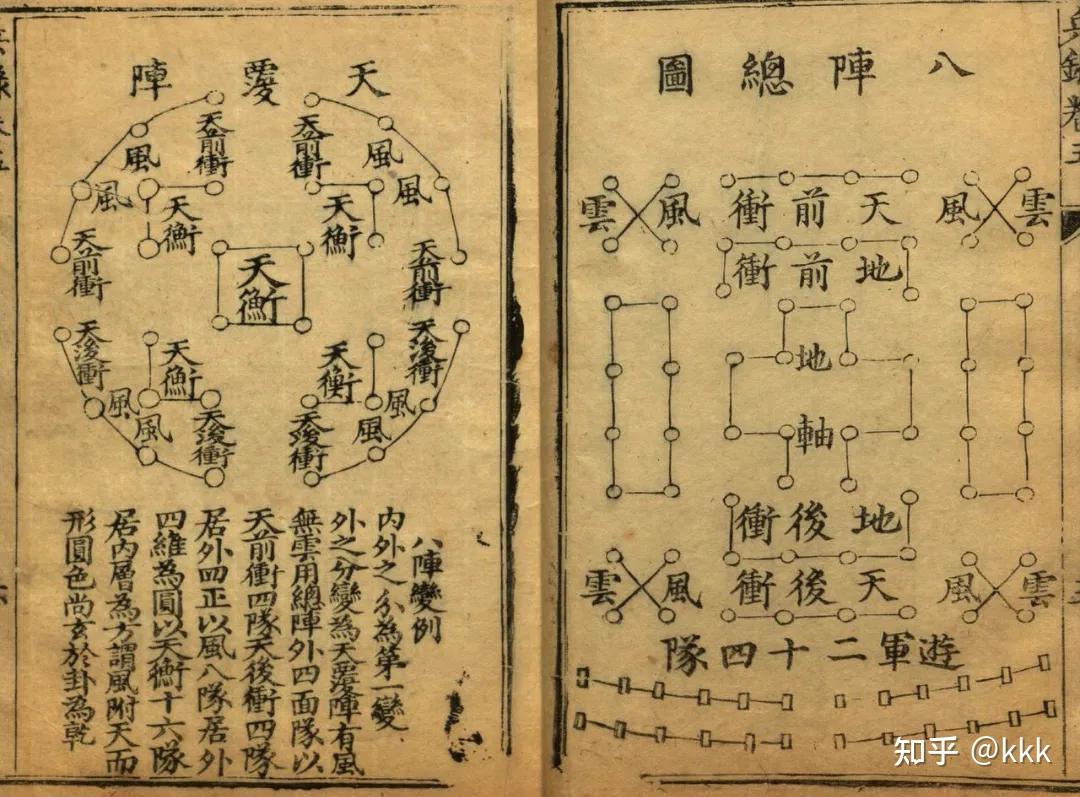 兵錄卷五
八陣總圖
雲風 天前衝 風雲
地前衝
地軸
地後衝
雲風 天後衝 風雲
遊軍二十四隊
天覆陣
天前衝 天前衝
風 風
風 風
天衡 天衡
天前衝 天前衝
天衡
天後衝 天後衝
天衡 天衡
風 風
風 風
天後衝 天後衝
八陣變例
內外之分為第一變
外之分變為天覆陣有風
無雲用總陣外四面隊以
天前衝四隊天後衝四隊
居外四正以風八隊居外
四維為圓以天衡十六隊
居內層為方謂風附天而
形圓色尚玄於卦為乾
知乎 @kkk